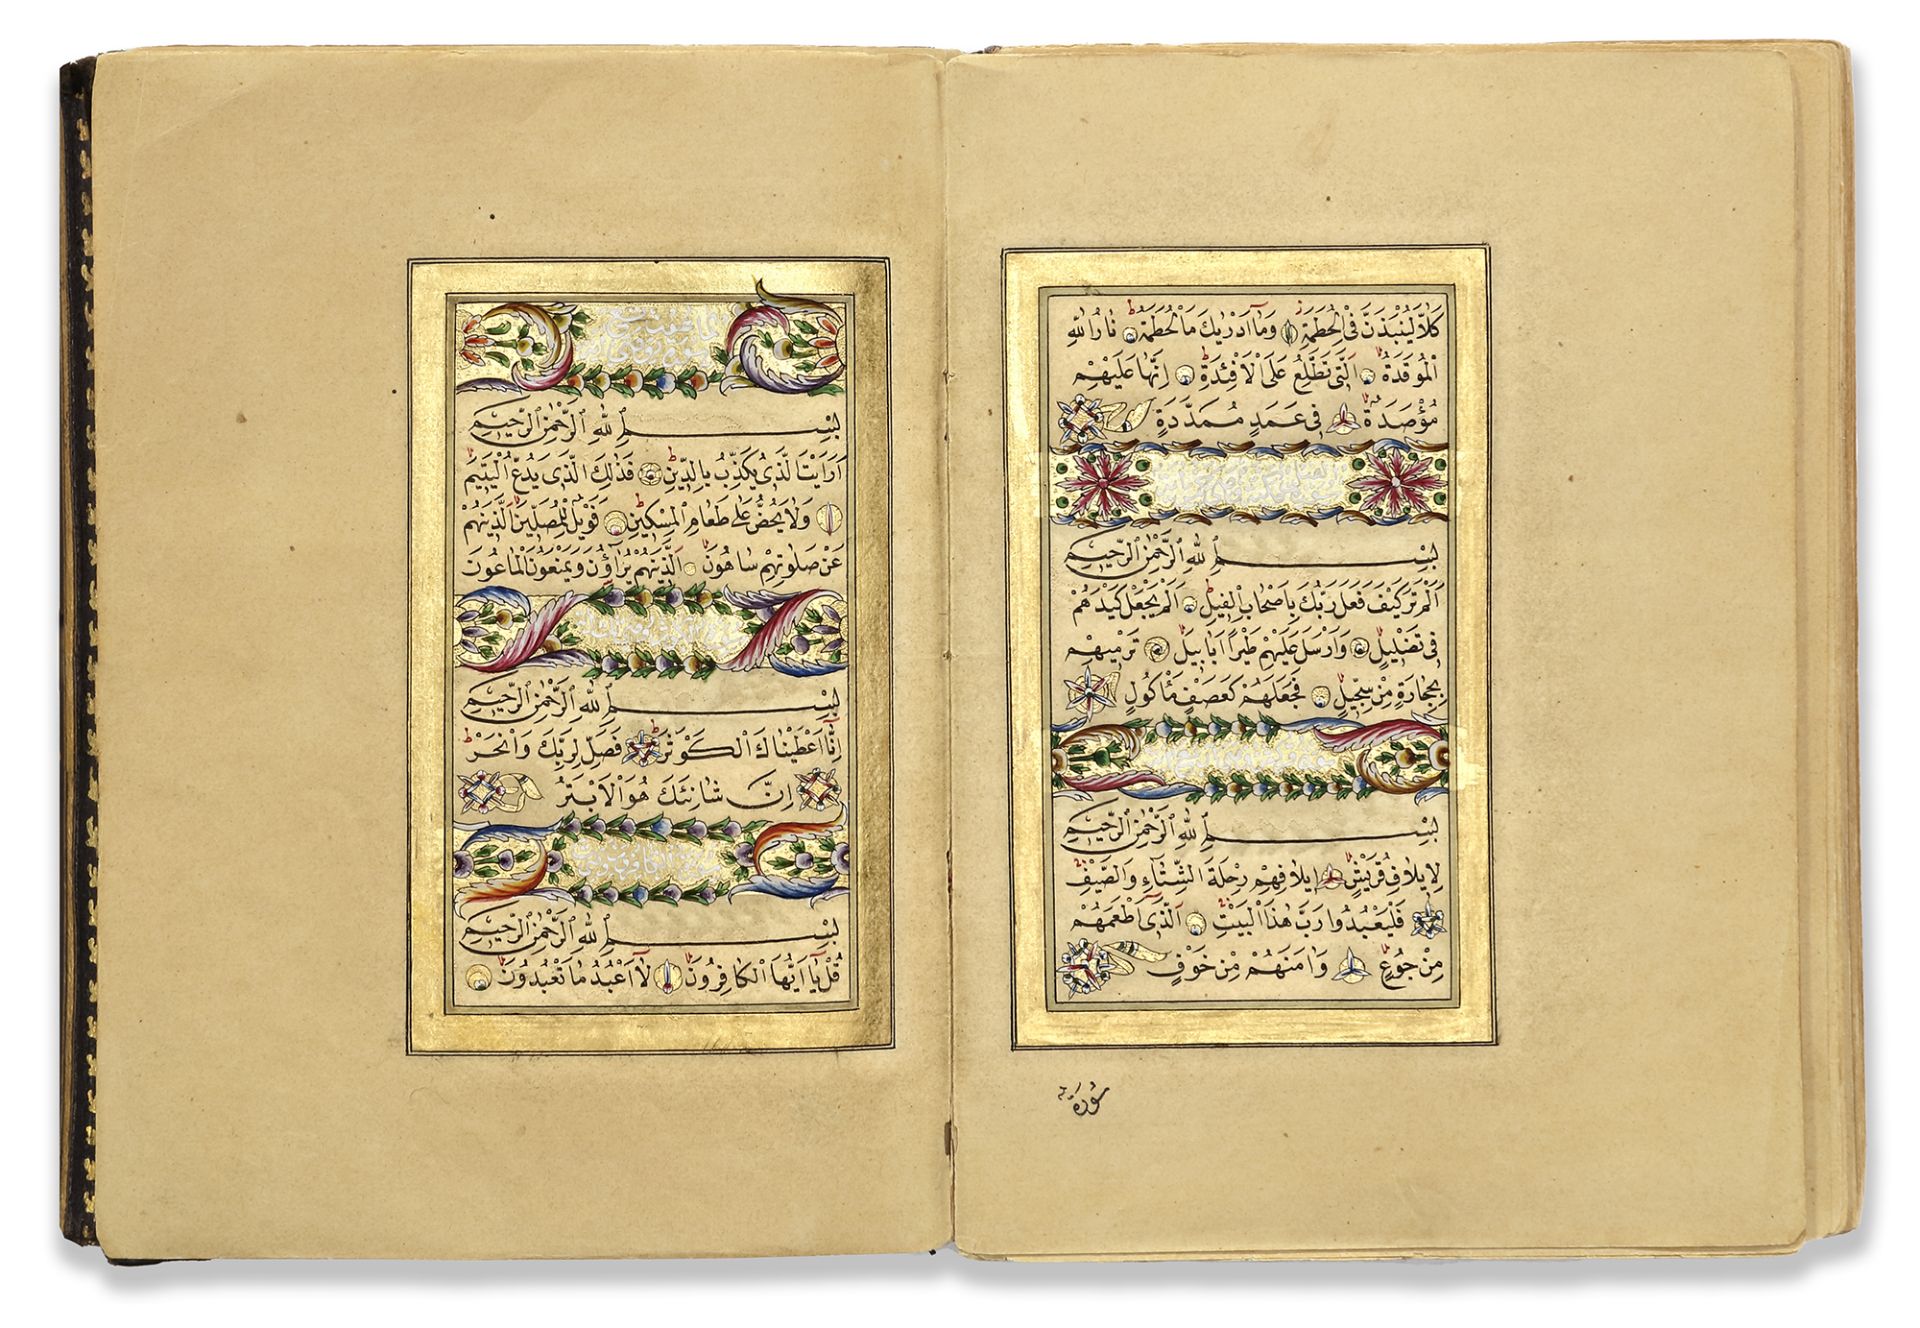 كَلَّا لَيُنْبَذَنَّ فِي الْحُطَمَةِ وَمَا اَدْرٰيكَ مَا الْحُطَمَةُ نَارُ اللّٰهِ
الْمُوقَدَةُ اَلَّتِي تَطَّلِعُ عَلَى الْاَفْئِدَةِ اِنَّهَا عَلَيْهِمْ
مُؤْصَدَةٌ فِي عَمَدٍ مُمَدَّدَةٍ
بِسْمِ اللّٰهِ الرَّحْمٰنِ الرَّحِيمِ
اَلَمْ تَرَ كَيْفَ فَعَلَ رَبُّكَ بِاَصْحَابِ الْفِيلِ اَلَمْ يَجْعَلْ كَيْدَهُمْ
فِي تَضْلِيلٍ وَاَرْسَلَ عَلَيْهِمْ طَيْرًا اَبَابِيلَ تَرْمِيهِمْ
بِحِجَارَةٍ مِنْ سِجِّيلٍ فَجَعَلَهُمْ كَعَصْفٍ مَأْكُولٍ
بِسْمِ اللّٰهِ الرَّحْمٰنِ الرَّحِيمِ
لِاِيلَافِ قُرَيْشٍ اِيلَافِهِمْ رِحْلَةَ الشِّتَاءِ وَالصَّيْفِ
فَلْيَعْبُدُوا رَبَّ هٰذَا الْبَيْتِ اَلَّذِي اَطْعَمَهُمْ
مِنْ جُوعٍ وَاٰمَنَهُمْ مِنْ خَوْفٍ
سُورَة
بِسْمِ اللّٰهِ الرَّحْمٰنِ الرَّحِيمِ
اَرَاَيْتَ الَّذِي يُكَذِّبُ بِالدِّينِ فَذٰلِكَ الَّذِي يَدُعُّ الْيَتِيمَ
وَلَا يَحُضُّ عَلٰى طَعَامِ الْمِسْكِينِ فَوَيْلٌ لِلْمُصَلِّينَ الَّذِينَ هُمْ
عَنْ صَلَاتِهِمْ سَاهُونَ اَلَّذِينَ هُمْ يُرَاؤُنَ وَيَمْنَعُونَ الْمَاعُونَ
بِسْمِ اللّٰهِ الرَّحْمٰنِ الرَّحِيمِ
اِنَّا اَعْطَيْنَاكَ الْكَوْثَرَ فَصَلِّ لِرَبِّكَ وَانْحَرْ
اِنَّ شَانِئَكَ هُوَ الْاَبْتَرُ
بِسْمِ اللّٰهِ الرَّحْمٰنِ الرَّحِيمِ
قُلْ يَا اَيُّهَا الْكَافِرُونَ لَا اَعْبُدُ مَا تَعْبُدُونَ